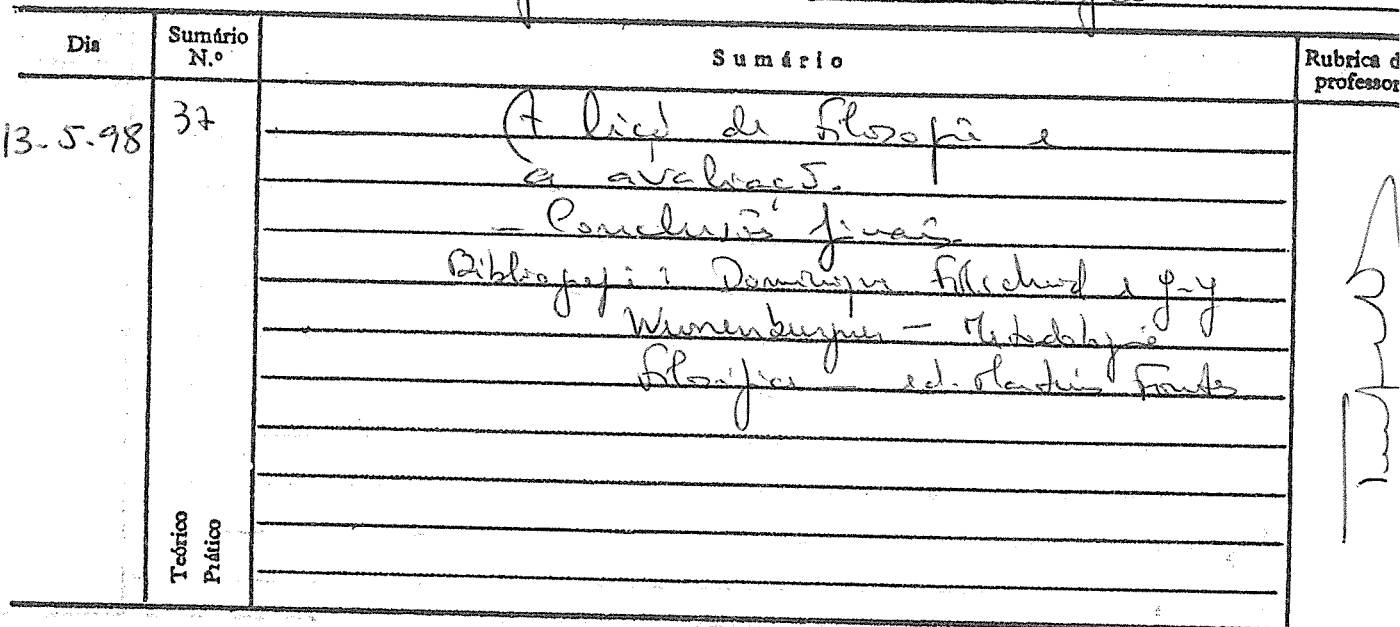 Dia
Sumário N.º
Sumário
Rubrica d
professor
13-5-98
37
A lição de filosofia e
a avaliação.
- Conclusões finais.
Bibliografia: Dominique Folscheid e J-J
Wunenburger - Metodologia
filosófica - ed. Martins Fontes
Teórico
Prático